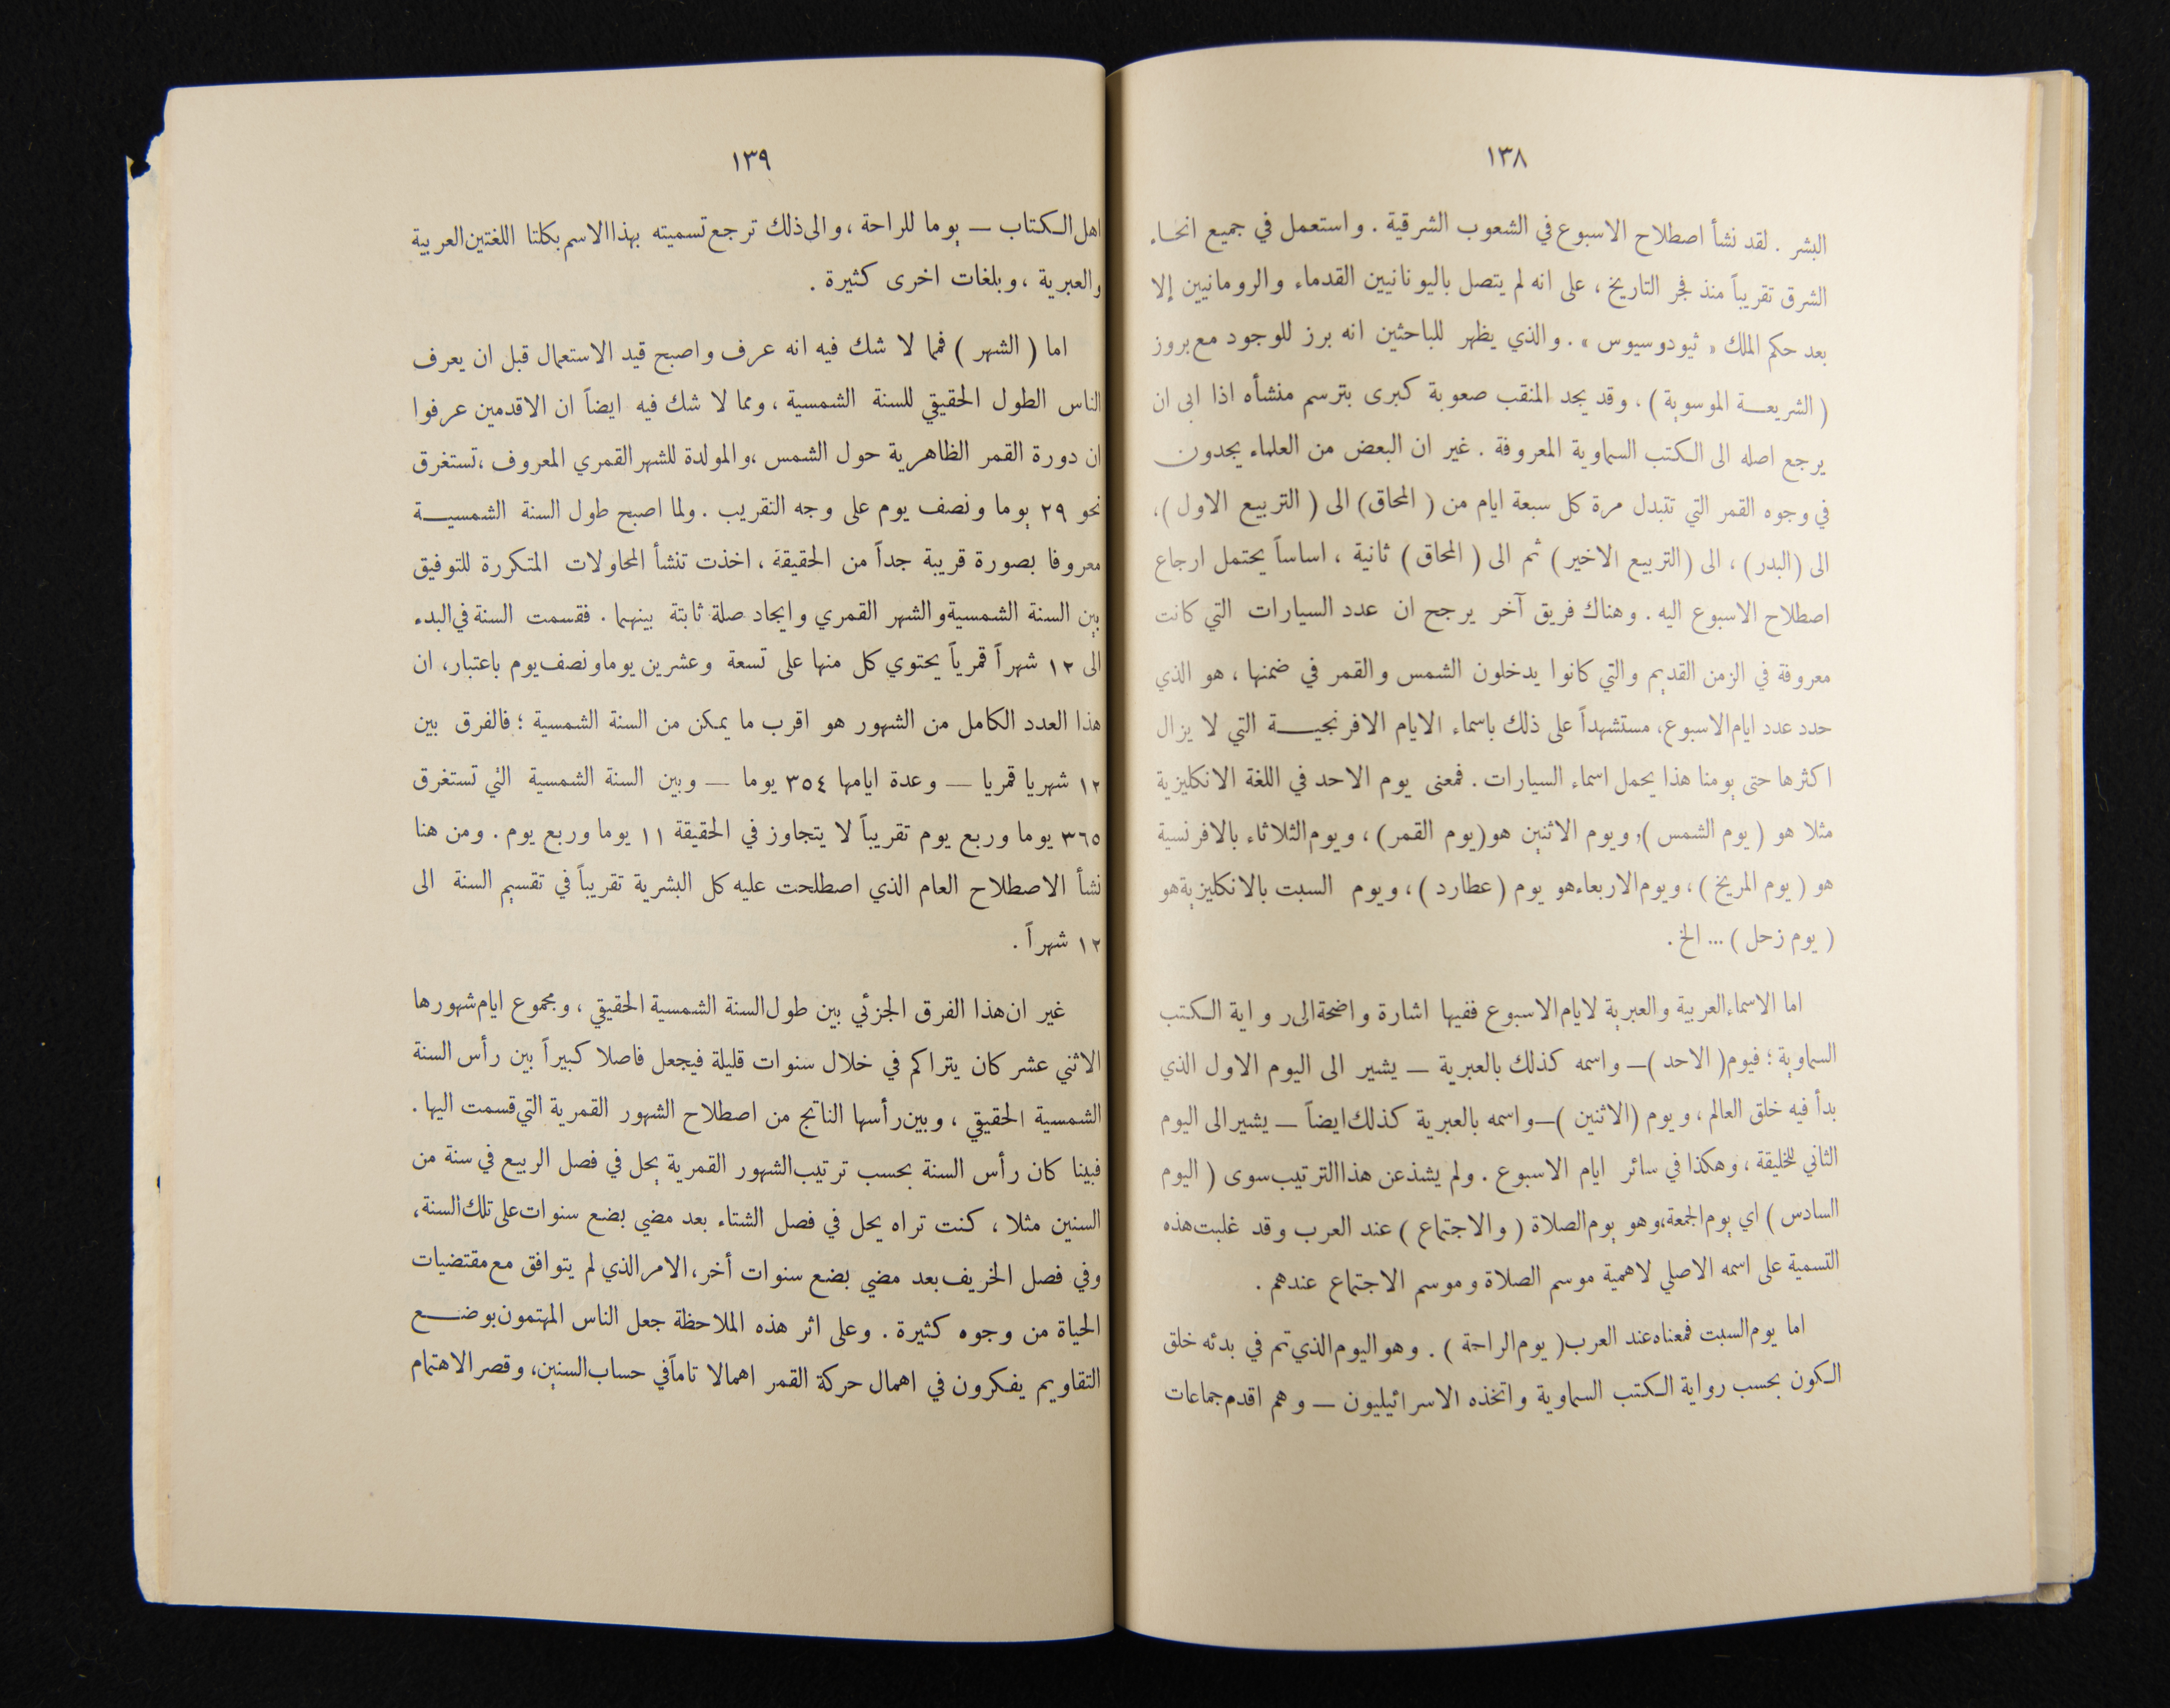 ١٣٨
البشر . لقد نشأ اصطلاح الاسبوع في الشعوب الشرقية . واستعمل في جميع انحـاء
الشرق تقريباً منذ فجر التاريخ ، على انه لم يتصل باليونانيين القدماء والرومانيين إلا
بعد حكم الملك « ثيودوسيوس » . والذي يظهر للباحثين انه برز للوجود مع بروز
( الشريعـــة الموسوية ) ، وقد يجد المنقب صعوبة كبرى بترسم منشأه اذا ابى ان
يرجع اصله الى الكتب السماوية المعروفة . غير ان البعض من العلماء يجدون
في وجوه القمر التي تتبدل مرة كل سبعة ايام من ( المحاق ) الى ( التربيع الاول ) ،
الى ( البدر ) ، الى ( التربيع الاخير ) ثم الى ( المحاق ) ثانية ، اساساً يحتمل ارجاع
اصطلاح الاسبوع اليه . وهناك فريق آخر يرجح ان عدد السيارات التي كانت
معروفة في الزمن القديم والتي كانوا يدخلون الشمس والقمر في ضمنها ، هو الذي
حدد عدد ايام الاسبوع ، مستشهداً على ذلك باسماء الايام الافرنجيـــة التي لا يزال
اكثرها حتى يومنا هذا يحمل اسماء السيارات . فمعنى يوم الاحد في اللغة الانكليزية
مثلا هو ( يوم الشمس ) , ويوم الاثنين هو ( يوم القمر ) ، ويوم الثلاثاء بالافرنسية
هو ( يوم المريخ ) ، ويوم الاربعاء هو يوم ( عطارد ) ، ويوم السبت بالانكليزية هو
( يوم زحل ) ... الخ .
اما الاسماء العربية والعبرية لايام الاسبوع ففيها اشارة واضحة الى رواية الكتب
السماوية ؛ فيوم ( الاحد ) — واسمه كذلك بالعبرية — يشير الى اليوم الاول الذي
بدأ فيه خلق العالم ، ويوم ( الاثنين ) — واسمه بالعبرية كذلك ايضاً — يشير الى اليوم
الثاني للخليقة ، وهكذا في سائر ايام الاسبوع . ولم يشذ عن هذا الترتيب سوى ( اليوم
السادس ) اي يوم الجمعة ، وهو يوم الصلاة ( والاجتماع ) عند العرب وقد غلبت هذه
التسمية على اسمه الاصلي لاهمية موسم الصلاة وموسم الاجتماع عندهم .
اما يوم السبت فمعناه عند العرب ( يوم الراحة ) . وهو اليوم الذي تم في بدئه خلق
الكون بحسب رواية الكتب السماوية واتخذه الاسرائيليون — وهم اقدم جماعات
١٣٩
اهل الكتاب — يوما للراحة ، والى ذلك ترجع تسميته بهذا الاسم بكلتا اللغتين العربية
والعبرية ، وبلغات اخرى كثيرة .
اما ( الشهر ) فمما لا شك فيه انه عرف واصبح قيد الاستعمال قبل ان يعرف
الناس الطول الحقيقي للسنة الشمسية ، ومما لا شك فيه ايضاً ان الاقدمين عرفوا
ان دورة القمر الظاهرية حول الشمس ، والمولدة للشهر القمري المعروف ، تستغرق
نحو ٢٩ يوما ونصف يوم على وجه التقريب . ولما اصبح طول السنة الشمسيـــة
معروفا بصورة قريبة جداً من الحقيقة ، اخذت تنشأ المحاولات المتكررة للتوفيق
بين السنة الشمسية والشهر القمري وايجاد صلة ثابتة بينهما . فقسمت السنة في البدء
الى ١٢ شهراً قمرياً يحتوي كل منها على تسعة وعشرين يوما ونصف يوم باعتبار ، ان
هذا العدد الكامل من الشهور هو اقرب ما يمكن من السنة الشمسية ؛ فالفرق بين
١٢ شهريا قمريا — وعدة ايامها ٣٥٤ يوما — وبين السنة الشمسية التي تستغرق
٣٦٥ يوما وربع يوم تقريباً لا يتجاوز في الحقيقة ١١ يوما وربع يوم . ومن هنا
نشأ الاصطلاح العام الذي اصطلحت عليه كل البشرية تقريباً في تقسيم السنة الى
١٢ شهراً .
غير ان هذا الفرق الجزئي بين طول السنة الشمسية الحقيقي ، ومجموع ايام شهورها
الاثني عشر كان يتراكم في خلال سنوات قليلة فيجعل فاصلا كبيراً بين رأس السنة
الشمسية الحقيقي ، وبين رأسها الناتج من اصطلاح الشهور القمرية التي قسمت اليها .
فبينا كان رأس السنة بحسب ترتيب الشهور القمرية يحل في فصل الربيع في سنة من
السنين مثلا ، كنت تراه يحل في فصل الشتاء بعد مضي بضع سنوات على تلك السنة ،
وفي فصل الخريف بعد مضي بضع سنوات أخر ، الامر الذي لم يتوافق مع مقتضيات
الحياة من وجوه كثيرة . وعلى اثر هذه الملاحظة جعل الناس المهتمون بوضـــع
التقاويم يفكرون في اهمال حركة القمر اهمالا تاماً في حساب السنين ، وقصر الاهتمام